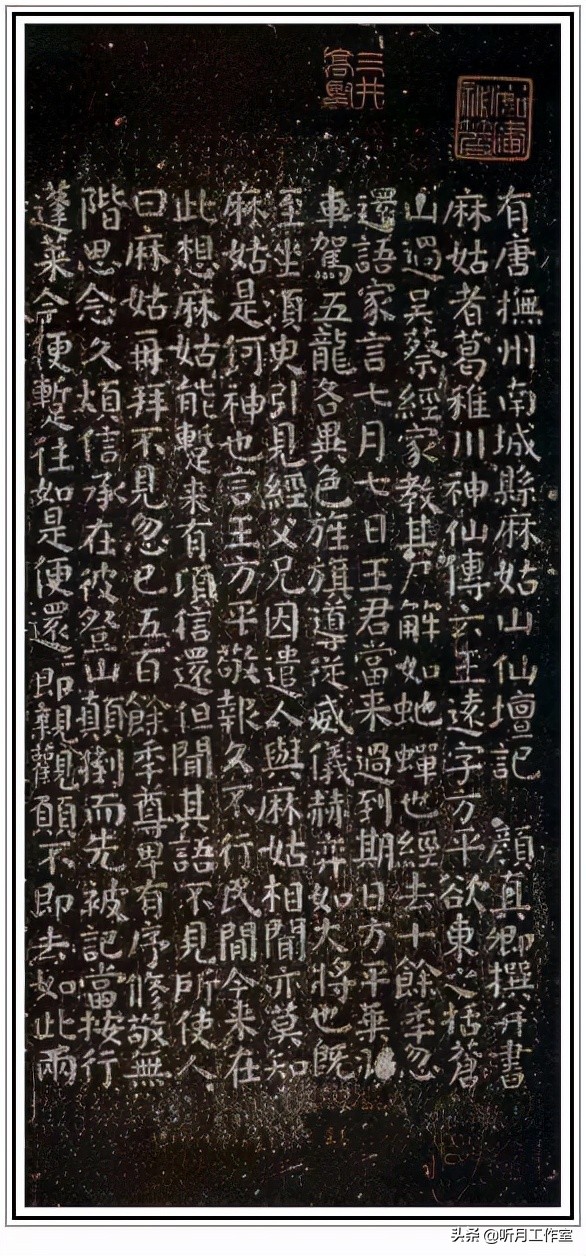 有唐撫州南城縣麻姑山仙壇記　顏真卿撰并書
麻姑者葛稚川神仙傳云王遠字方平欲東之括蒼
山過吳蔡經家教其尸解如虵蟬也經去十餘秊忽
還語家言七月七日王君當来過到期日方平乗羽
車駕五龍各異色旌旗導從威儀赫弈如大將也既
至坐須臾引見經父兄因遣人與麻姑相聞亦莫知
麻姑是何神也言王方平敬報久不行民間今来在
此想麻姑能蹔来有頃信還但聞其語不見所使人
曰麻姑再拜不見忽已五百餘秊尊卑有序修敬無
階思念久煩信承在彼登山顛倒而先被記當按行
蓬萊今便蹔往如是便還即親覲願不即去如此兩
三井高堅
头条 @听月工作室